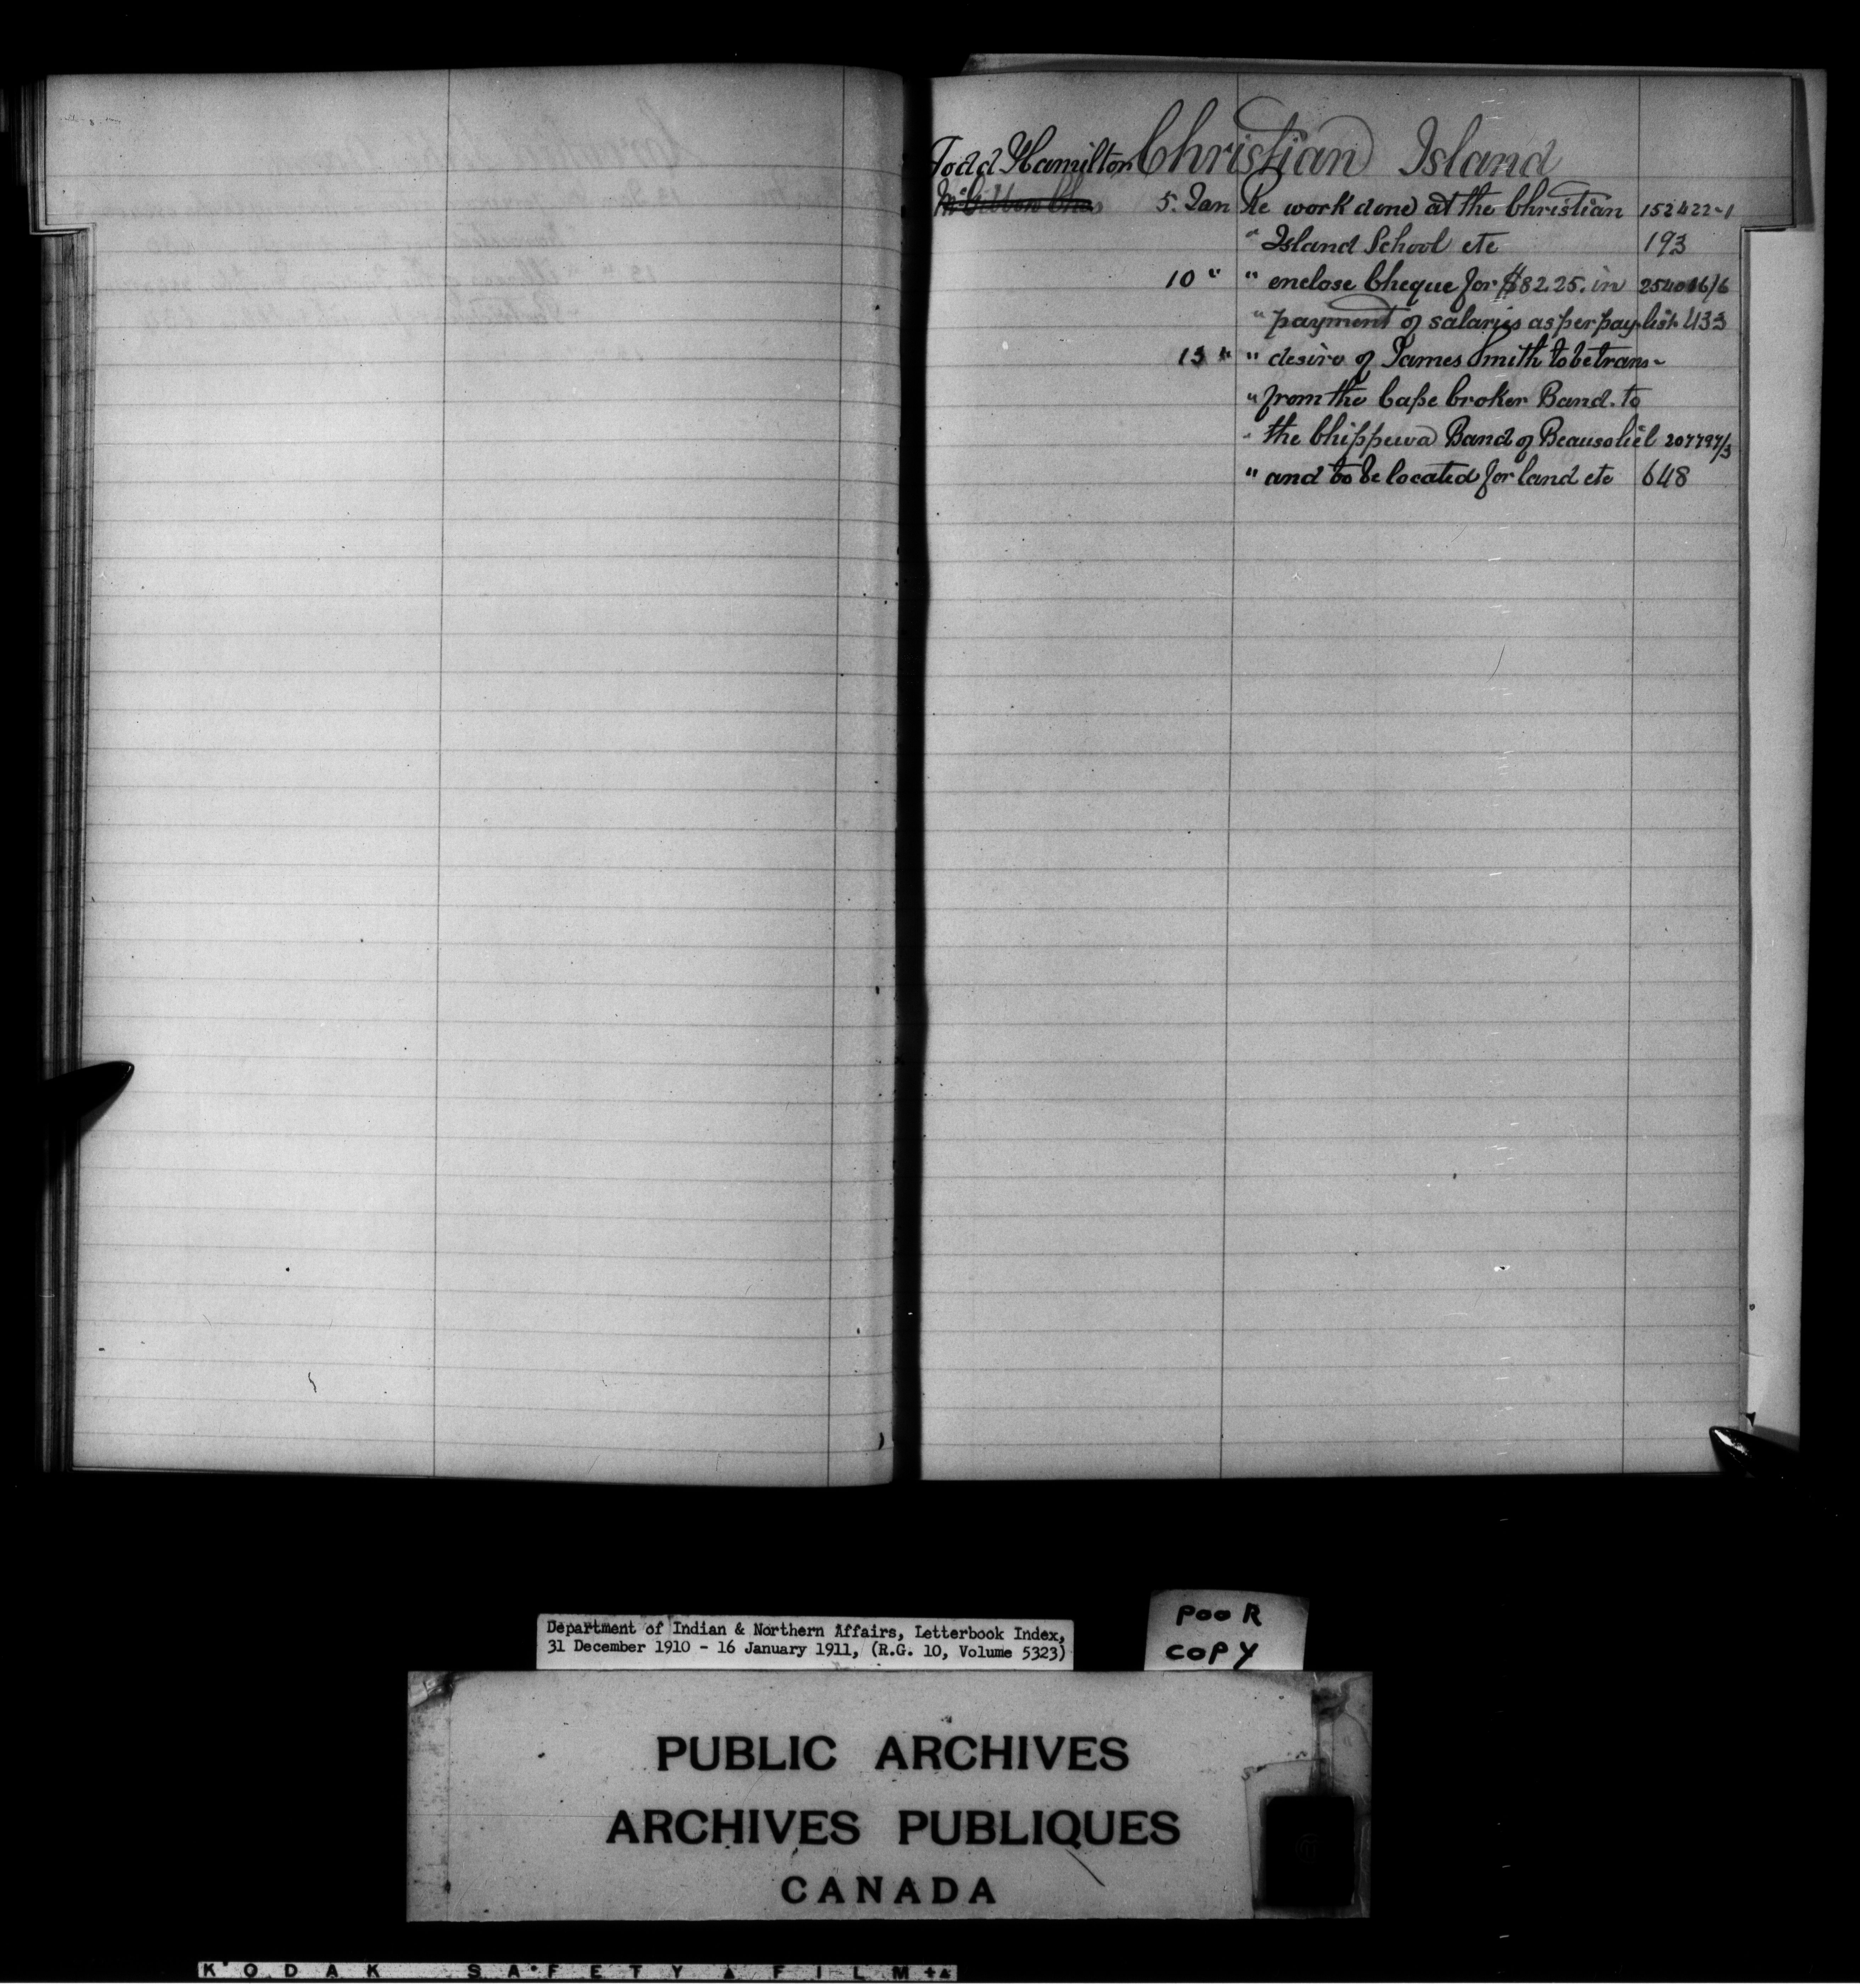 Todd Hamilton Christian Island
McGibbon Chas 5. Jan Re work done at the Christian 152422-1
" Island School etc 193
10 " " enclose Cheque for $82.25. in 254016/6
" payment of salaries as per pay-list 433
13 " " desire of James Smith to be trans-
" from the Cape Croker Band. to
" the Chippewa Band of Beausoliel 207797/3
" and to be located for land etc 648
Department of Indian & Northern Affairs, Letterbook Index,
31 December 1910 - 16 January 1911, (R.G. 10, Volume 5323)
POOR
COPY
PUBLIC ARCHIVES
ARCHIVES PUBLIQUES
CANADA
KODAK SAFETY FILM